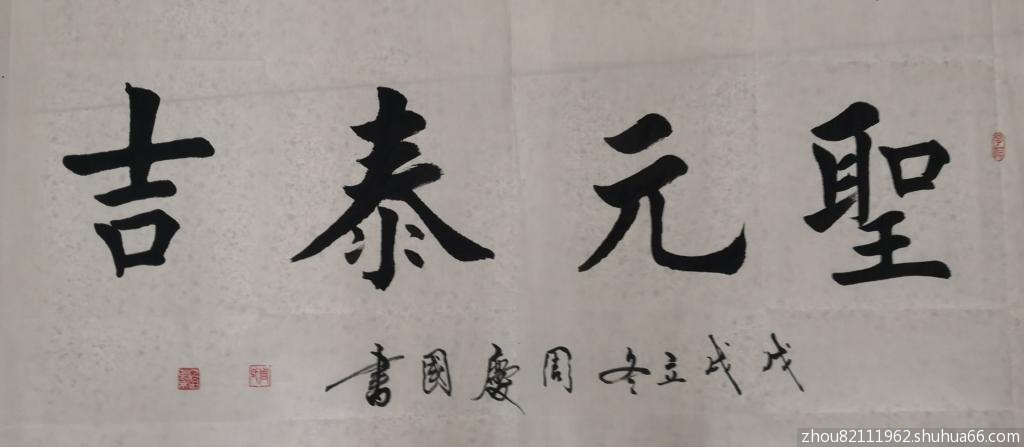 聖元泰吉
戊戌立冬周慶國書
zhou82111962.shuhua66.com